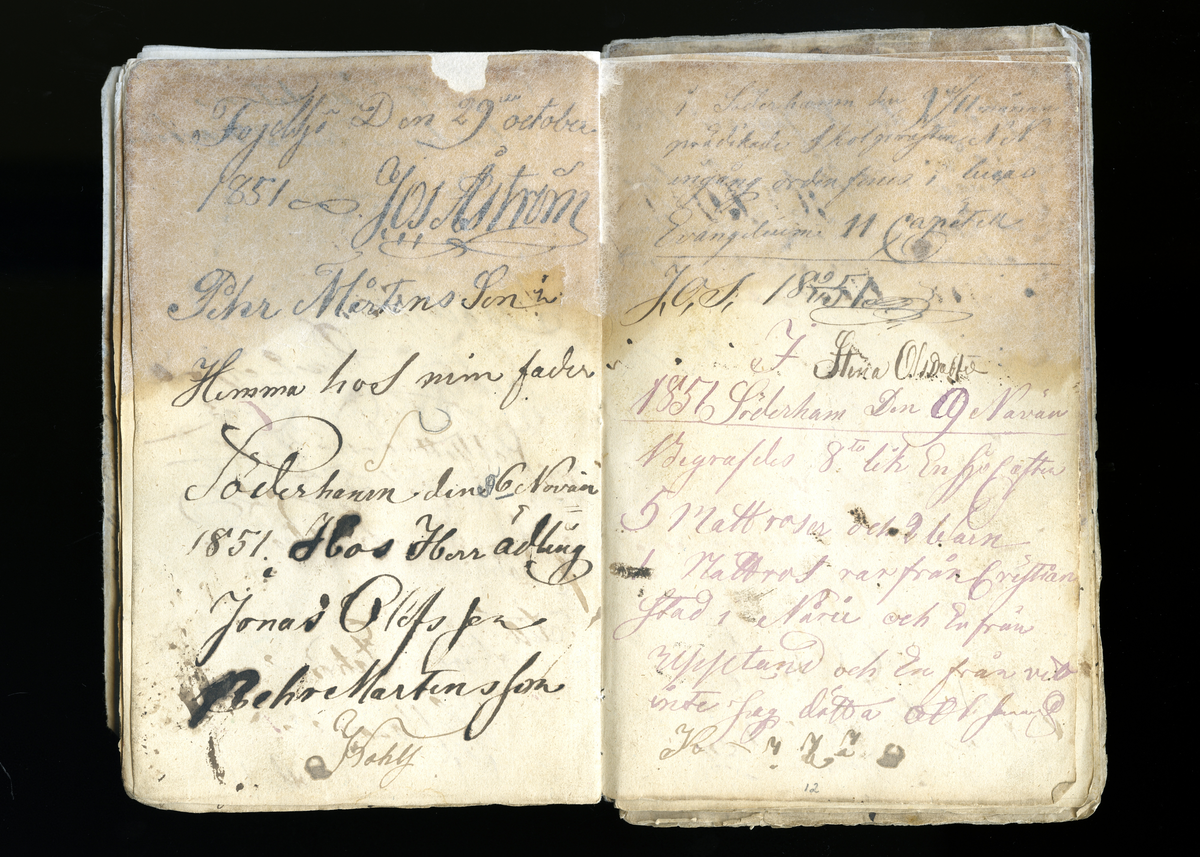 Fogelsjö Den 29 october
1851 Jos Åström
Pehr Mårtens Son i
Hemma hos min fader
Söderhamn den 16 Novän
1851. Hos Herr ädling
Jonas Olofsson
Pehr Martensson
i Söderhamn den
prädekade Skolprästen
ingång orden finns i
Evangelium 11 Capitell
J,O,S, 1851
J Stina Olsdotter
1851 Söderham Den 9 Novän
Begrafdes 8 lik En
5 Mattrosar och 2 barn
1 Mattros var från Cristian
stad i Nårie och En från
Uppland och En från vet
inte jag dätta
12